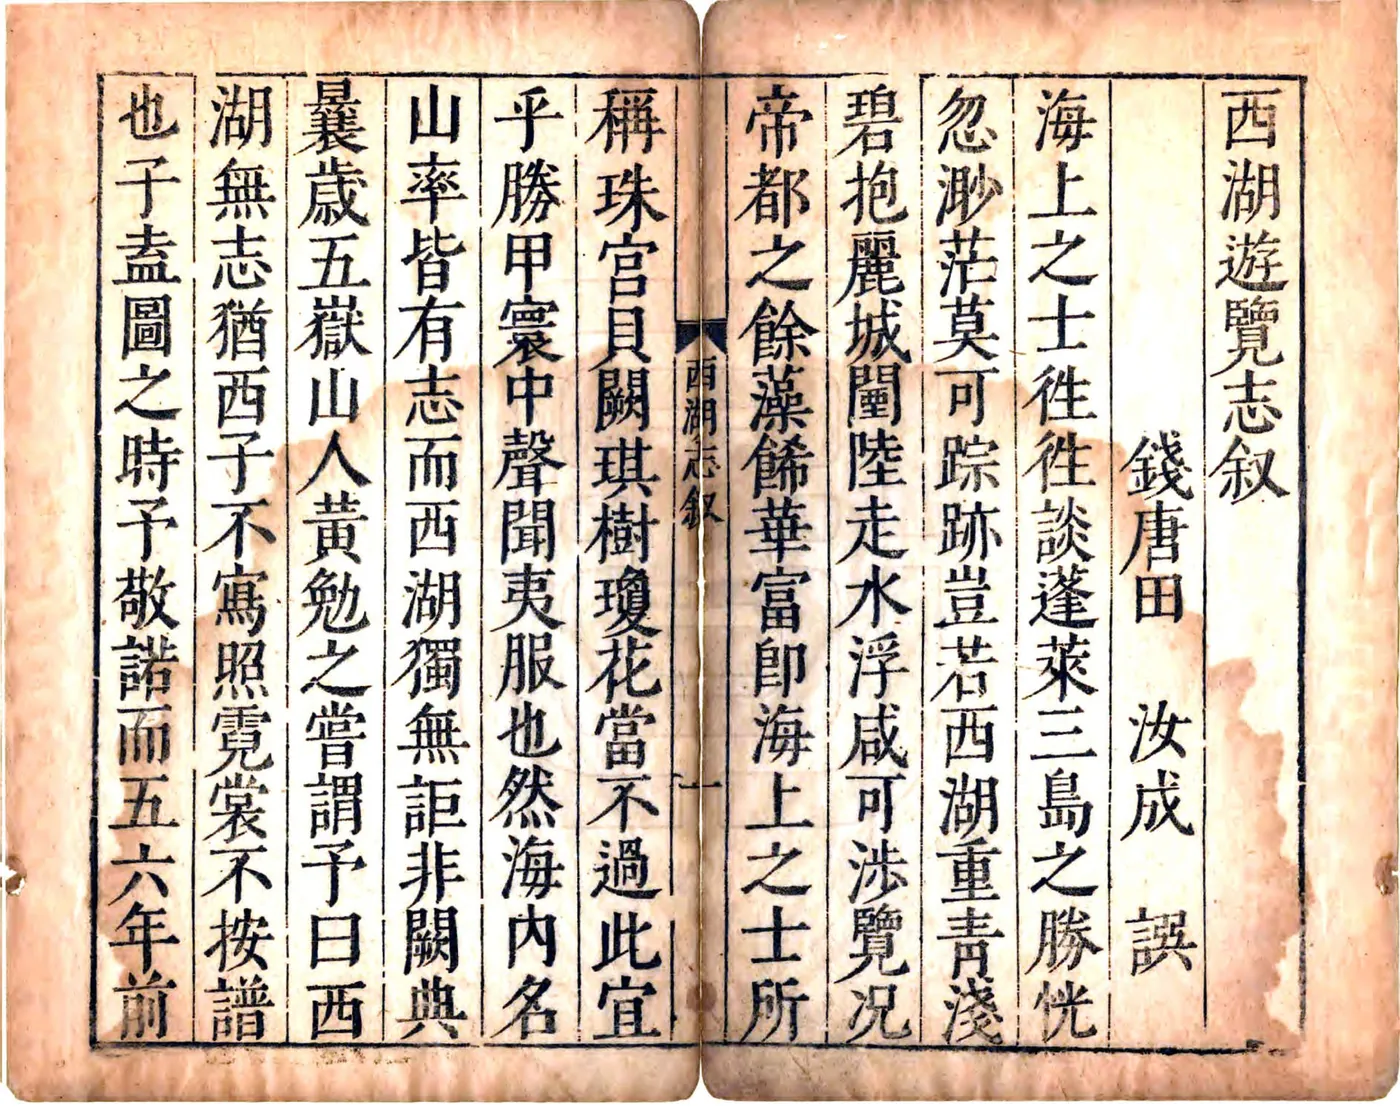 西湖遊覽志叙
錢唐田　汝成　誤
海上之士徃徃談蓬萊三島之勝恍
忽渺茫莫可踪跡豈若西湖重青淺
碧抱麗城闉陸走水浮咸可涉覽况
帝都之餘藻餙華富卽海上之士所
西湖志叙
一
稱珠宫貝闕琪樹瓊花當不過此宜
乎勝甲寰中聲聞夷服也然海内名
山率皆有志而西湖獨無詎非闕典
曩歲五嶽山人黃勉之嘗謂予曰西
湖無志猶西子不寫照霓裳不按譜
也子盍圖之時予敬諾而五六年前